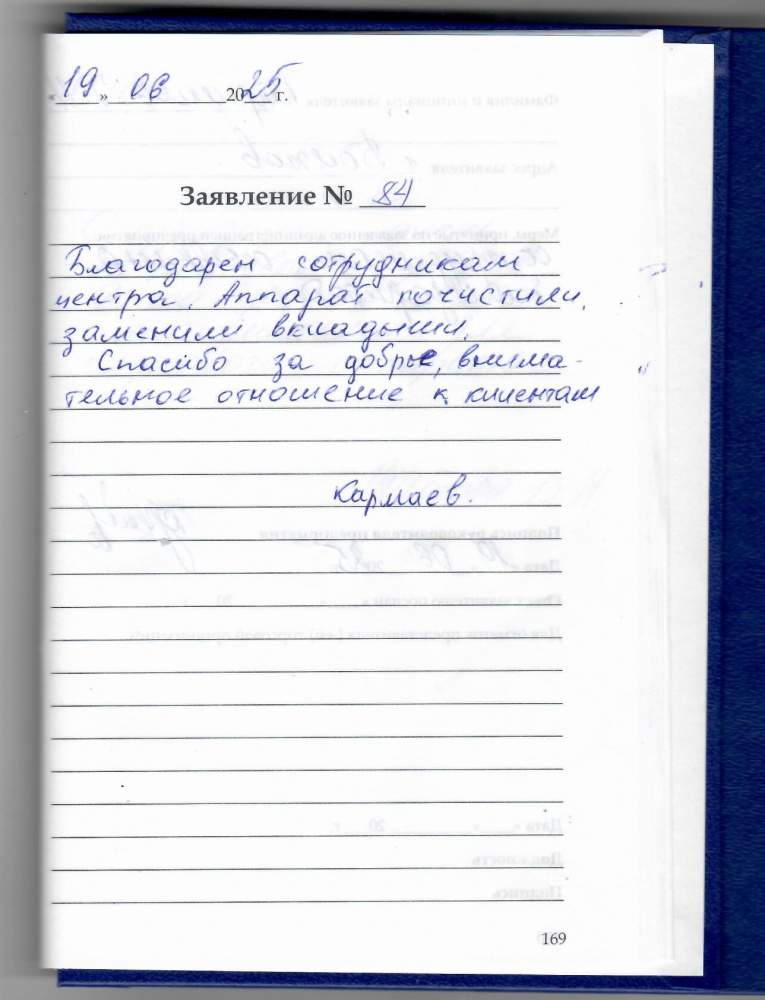 «19» 06 2025 г.
Заявление № 84
Благодарен сотрудникам
центра. Аппарат почистили,
заменили вкладыши.
Спасибо за добрые, внима-
тельное отношение к клиентам
Кармаев.
169